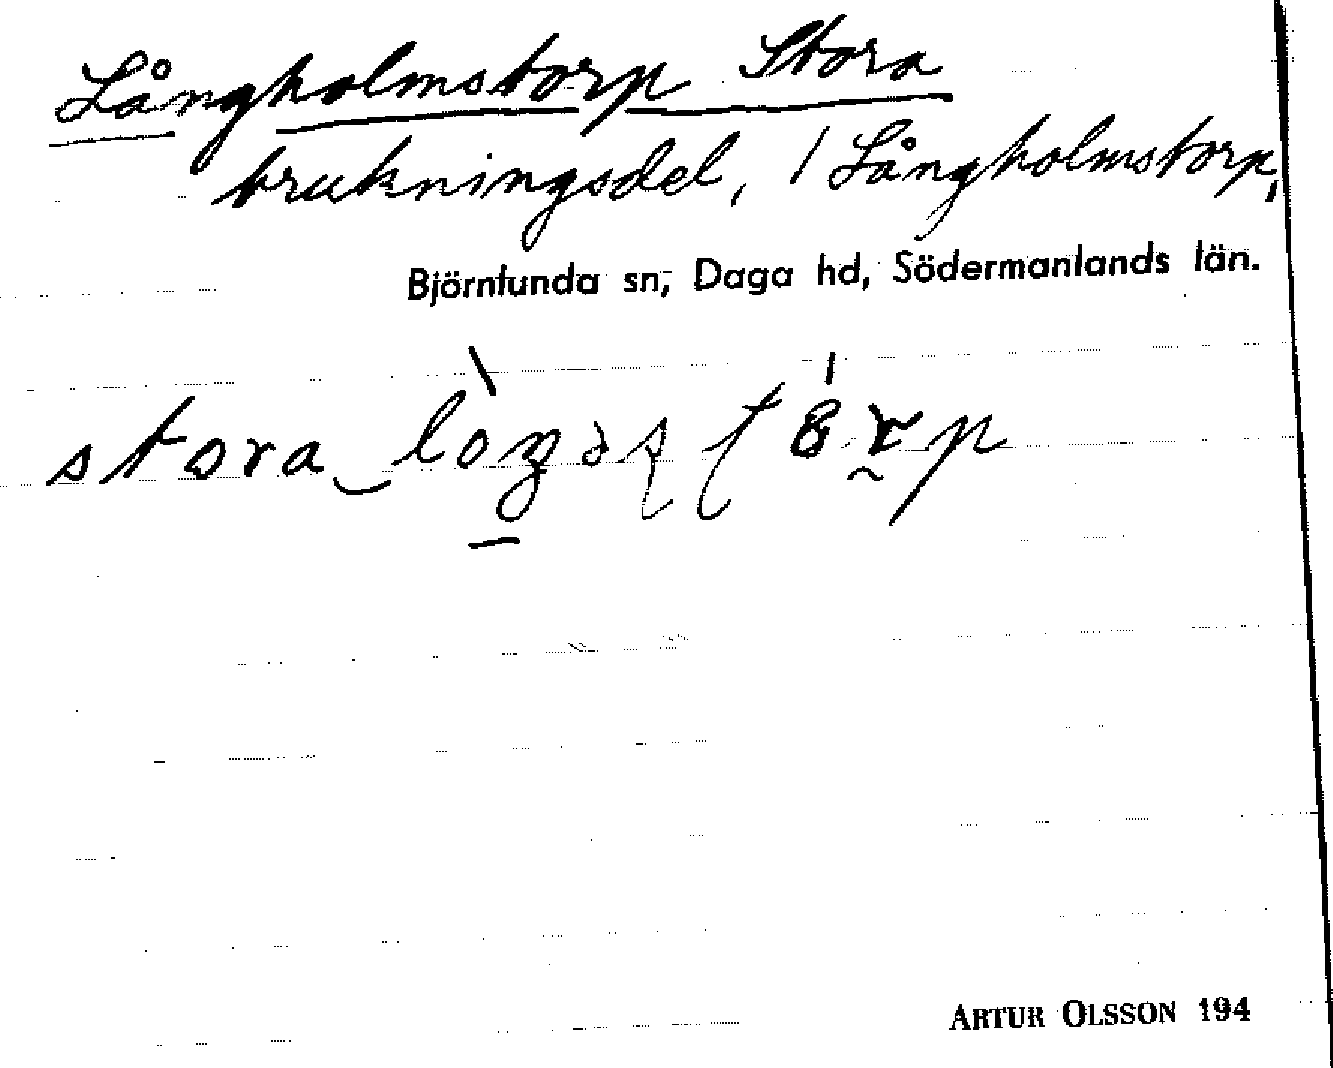 Långholmstorp Stora
brukningsdel, / Långholmstorp,
Björnlunda sn, Daga hd, Södermanlands län.
stora
ARTUR OLSSON 194